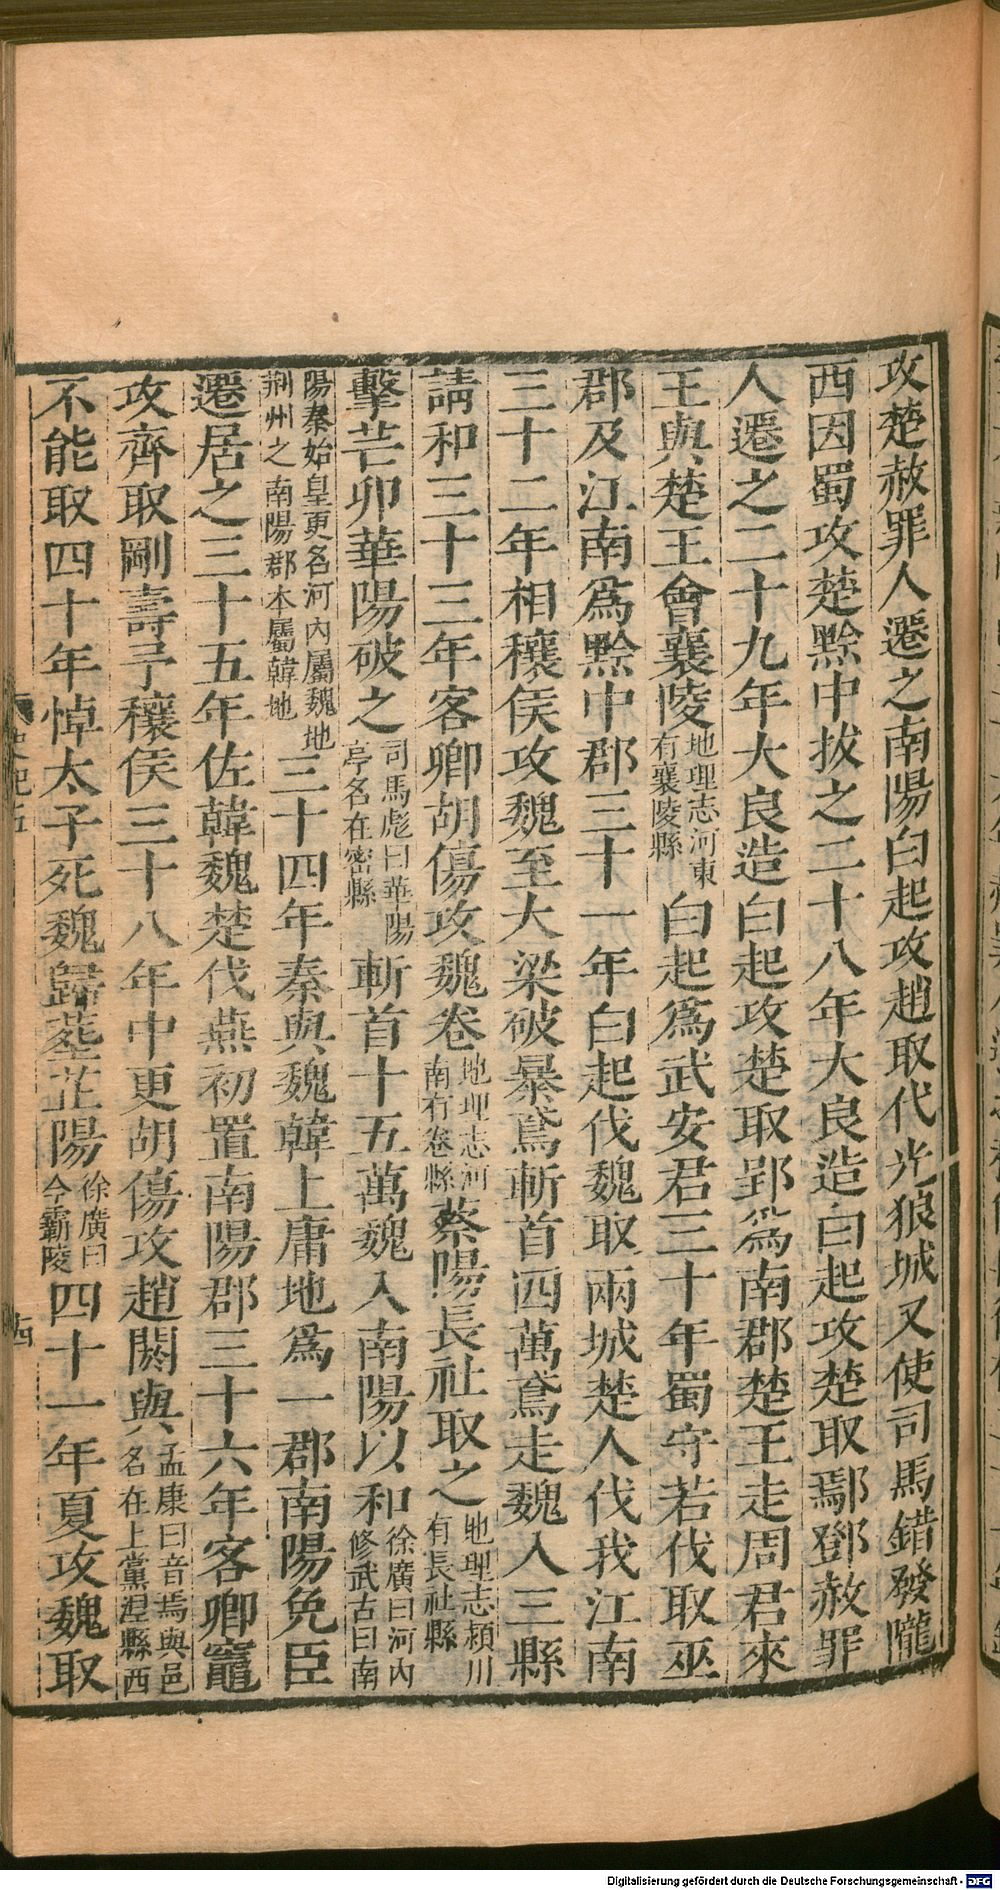 攻楚赦罪人遷之南陽白起攻趙取代光狼城又使司馬錯發隴
西因蜀攻楚黔中拔之二十八年大良造白起攻楚取鄢鄧赦罪
人遷之二十九年大良造白起攻楚取郢為南郡楚王走周君來
王與楚王會襄陵地理志河東有襄陵縣白起為武安君三十年蜀守若伐取巫
郡及江南為黔中郡三十一年白起伐魏取兩城楚人伐我江南
三十二年相穰侯攻魏至大梁破暴鳶斬首四萬鳶走魏入三縣
請和三十三年客卿胡傷攻魏卷地理志河南有卷縣蔡陽長社取之地理志潁川有長社縣
擊芒卯華陽破之司馬彪曰華陽亭名在密縣斬首十五萬魏入南陽以和徐廣曰河內修武古曰南
陽秦始皇更名河內屬魏地荊州之南陽郡本屬韓地三十四年秦與魏韓上庸地為一郡南陽免臣
遷居之三十五年佐韓魏楚伐燕初置南陽郡三十六年客卿竈
攻齊取剛壽予穰侯三十八年中更胡傷攻趙閼與孟康曰音焉與邑名在上黨涅縣西
不能取四十年悼太子死魏歸葬芷陽徐廣曰今霸陵四十一年夏攻魏取
史記五
十四
Digitalisierung gefördert durch die Deutsche Forschungsgemeinschaft - DFG